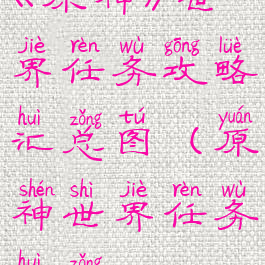 jiè rèn wù gōng lüè
界任务攻略
huì zǒng tú yuán
汇总图(原
shén shì jiè rèn wù
神世界任务
huì zǒng